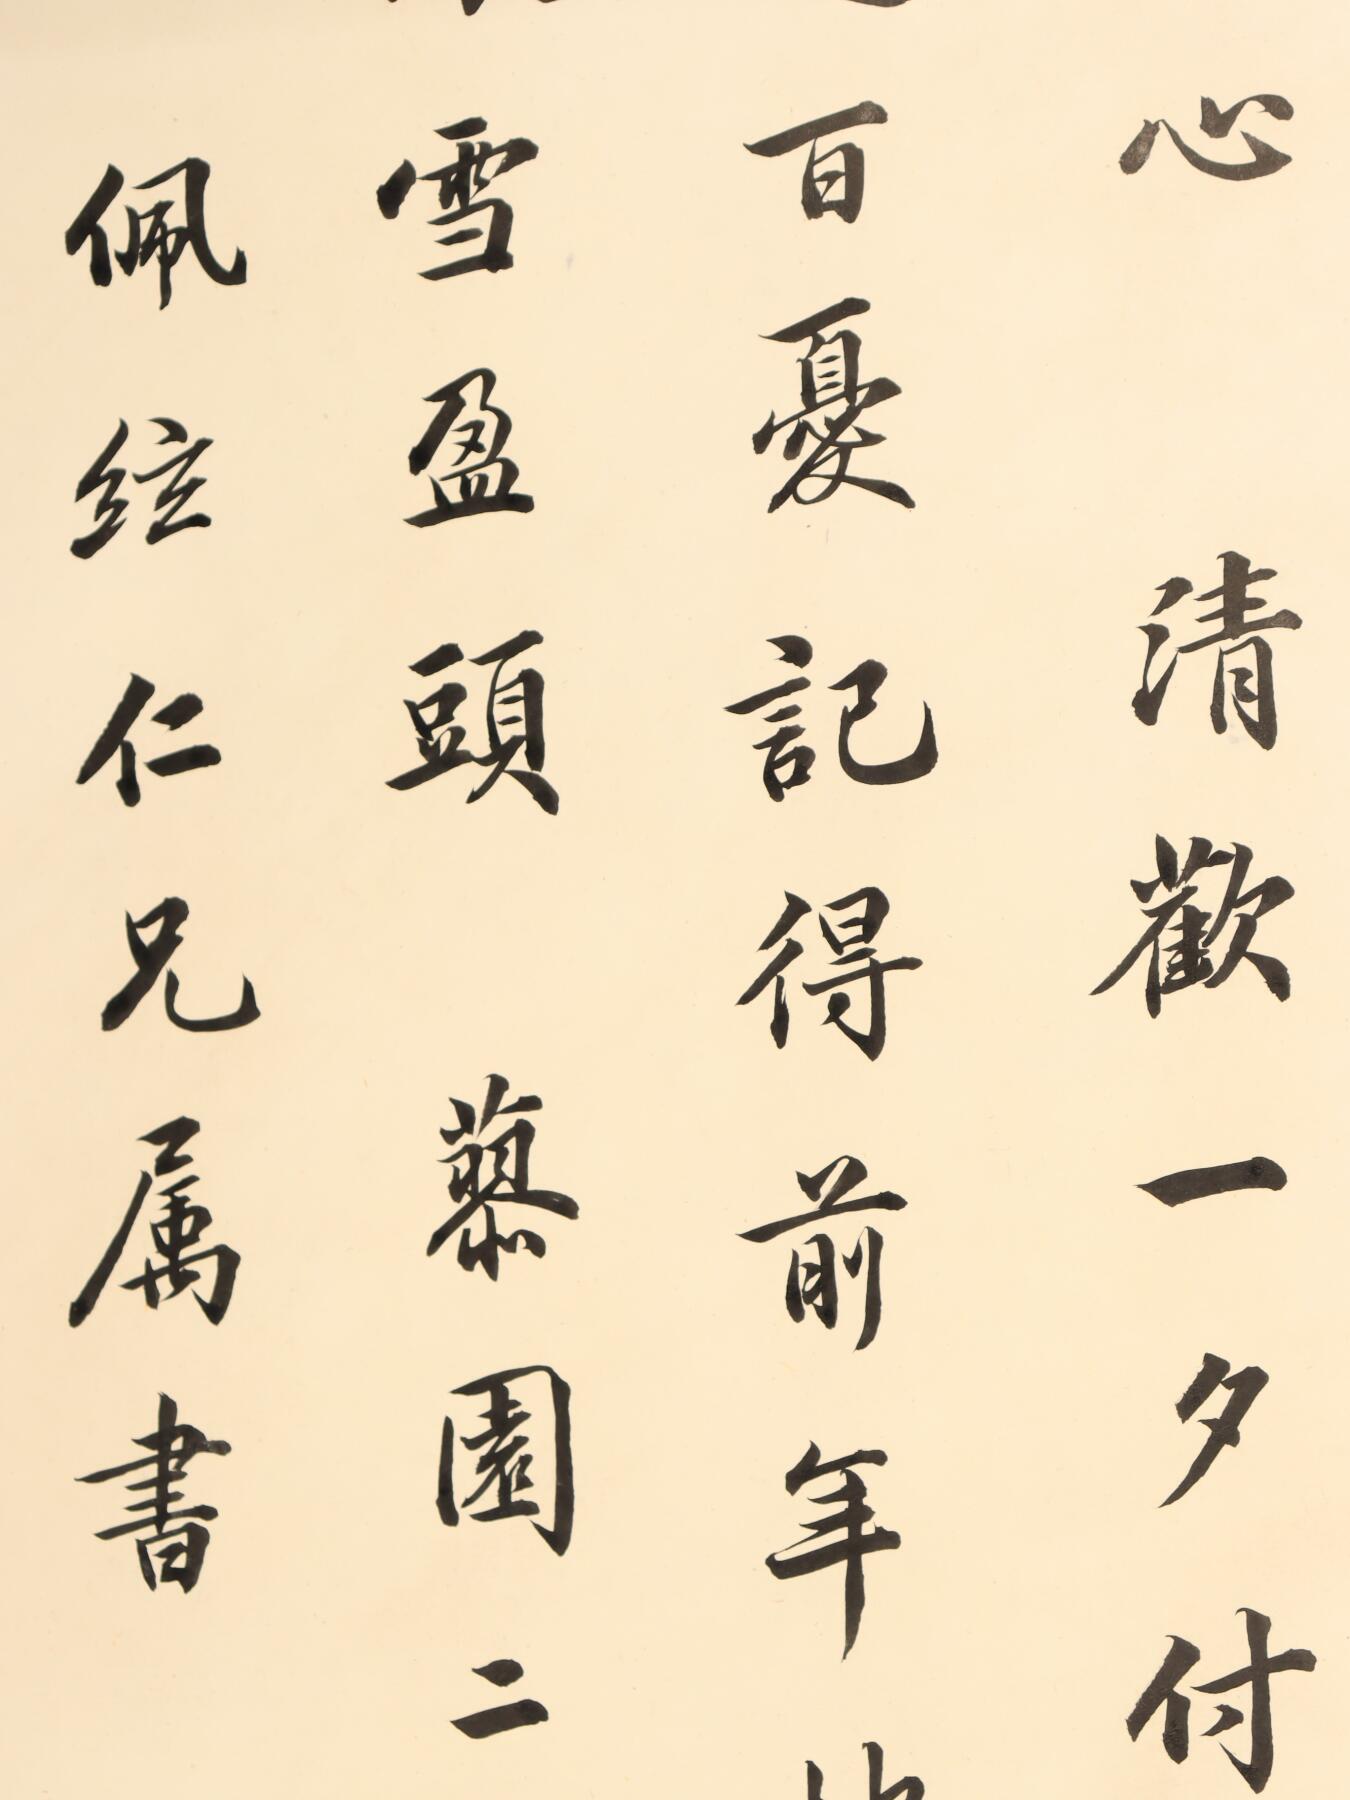 心 清歡一夕付
百憂記得前年
雪盈頭 藝園二
佩絃仁兄属書